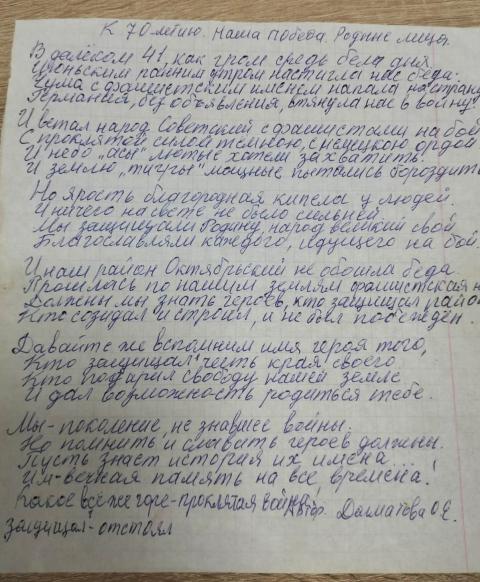 К 70-летию. Наша Победа. Родные лица.
В далёком 41, как гром средь бела дня.
Июньским ранним утром настигла нас беда.
Чума с фашистским именем напала на страну
Германия, без объявления, втянула нас в войну.
И встал народ Советский с фашистами на бой
С проклятой силой тёмною, с немецкою ордой
И небо „асы" лютые хотели захватить.
И землю „тигры" мощные пытались бороздить
Но ярость благородная кипела у людей.
И ничего на свете не было сильней
Мы защищали Родину, народ великий свой
Благославляли каждого, идущего на бой.
И наш район Октябрьский не обошла беда.
Прошлась по нашим землям фашистская
Должны мы знать героев, кто защищал район
Кто созидал и строил, и не был побеждён.
Давайте же вспомним имя героя того,
Кто защищал честь края своего
Кто подарил свободу нашей земле
И дал возможность родиться тебе.
Мы - поколение, не знавшее войны.
Но помнить и славить героев должны.
Пусть знает история их имена
Им - вечная память на все времена!
Какое всё же горе - проклятая война! Автор. Далматова О.Е.
защищал - отстоял